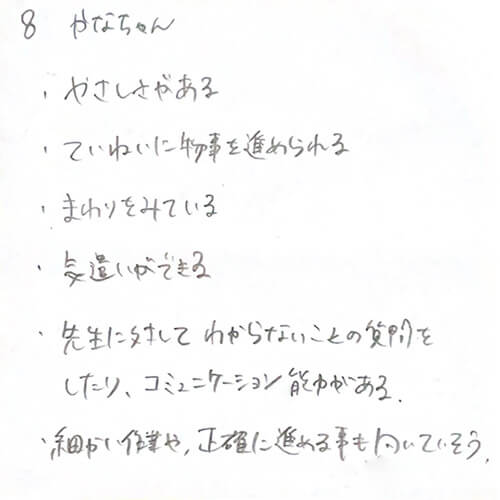 8 かなちゃん
・やさしさがある
・ていねいに物事を進められる
・まわりをみている
・気遣いができる
・先生に対して わからないことの質問を
したり、コミュニケーション能力がある.
・細かい作業や,正確に進める事も向いていそう,